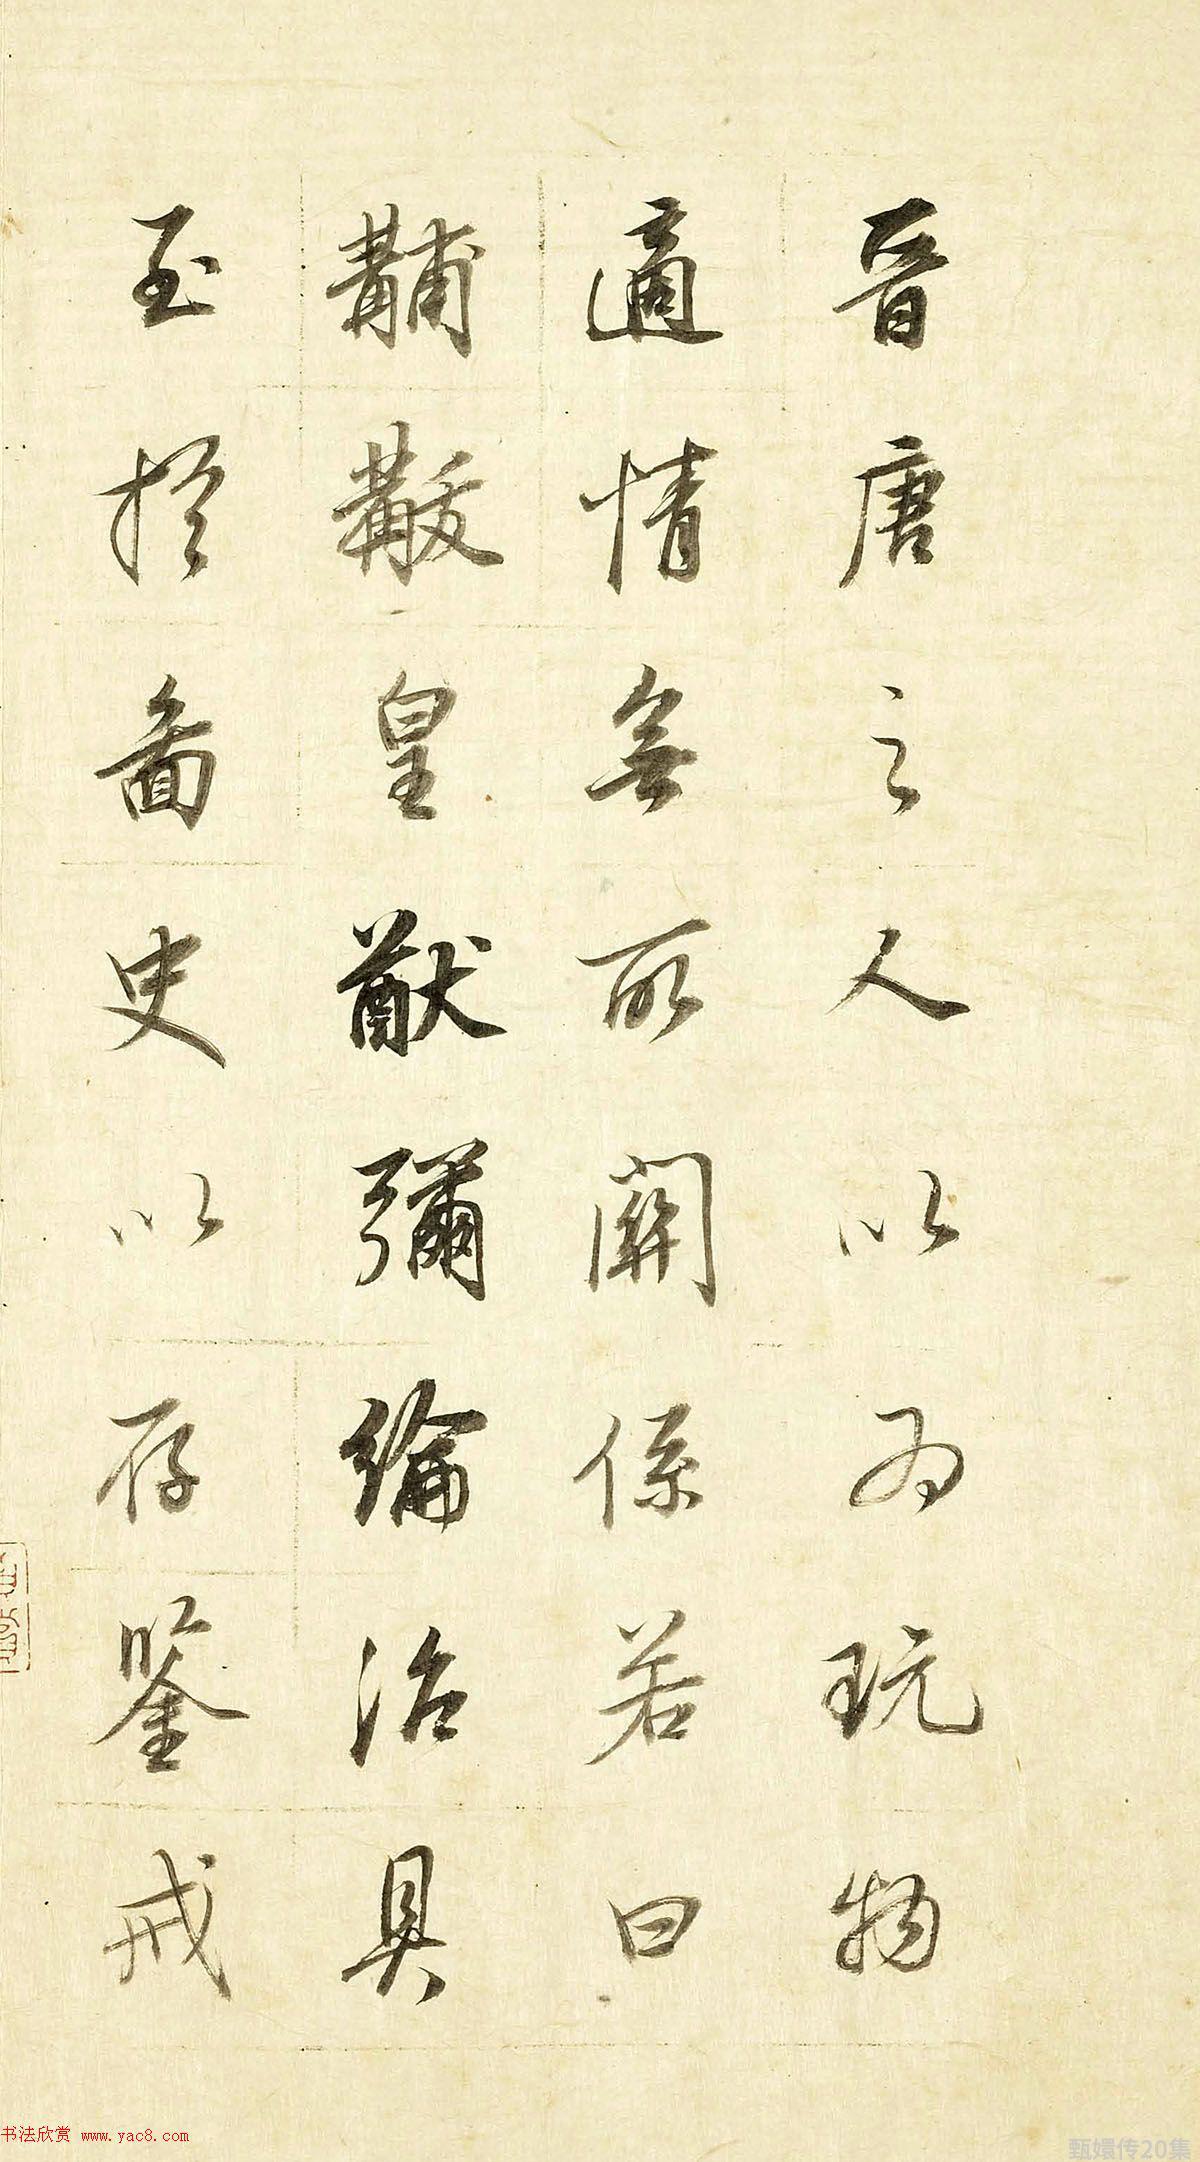 晉唐之人以為玩物
適情無所關係若曰
黼黻皇猷彌綸治具
至於啚史以存鑒戒
书法欣赏 www.yac8.com
甄嬛传20集